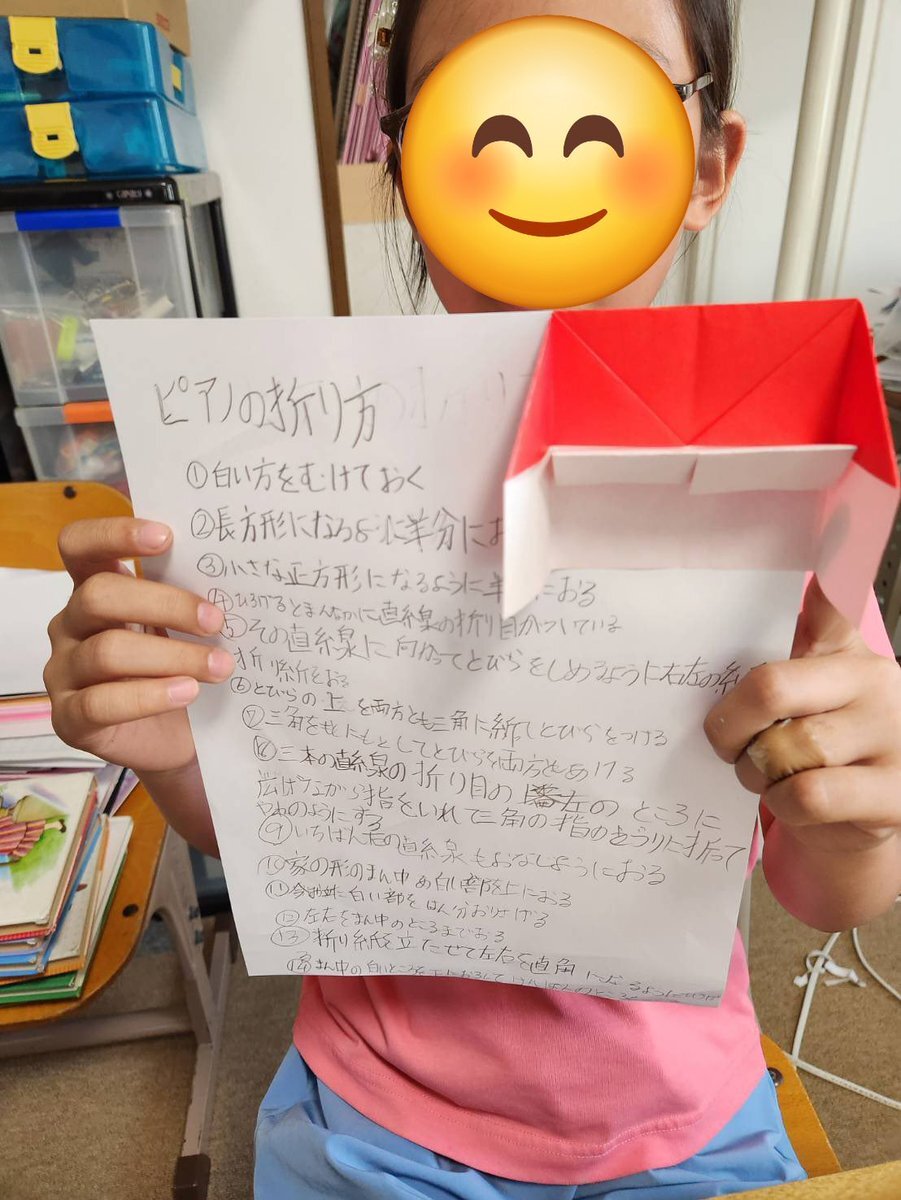 ピアノの折り方
①白い方をむけておく
②長方形になるように半分にお
③小さな正方形になるように半 におる
④ひろげるとまんなかに直線の折り目がついている
⑤その直線に向かってとびらをしめるように右左の
折り紙をおる
⑥とびらの上を両方とも三角に折しとびらをつける
⑦三角をもとにもどしてとびらを両方ともあける
三本の直線の折り目の左のところに
広げながら指をいれて三角の指のとうりに折って
やねのようにする
⑨いちばん右の直線もおなじようにおる
⑩家の形のまん中の白い部を上におる
⑪今 に白い部をはん分おりさげる
⑫左右をまん中のところまでおる
⑬折り紙を立たせて左右を直角になるようにひらく
⑭まん中の白いところを下におろして